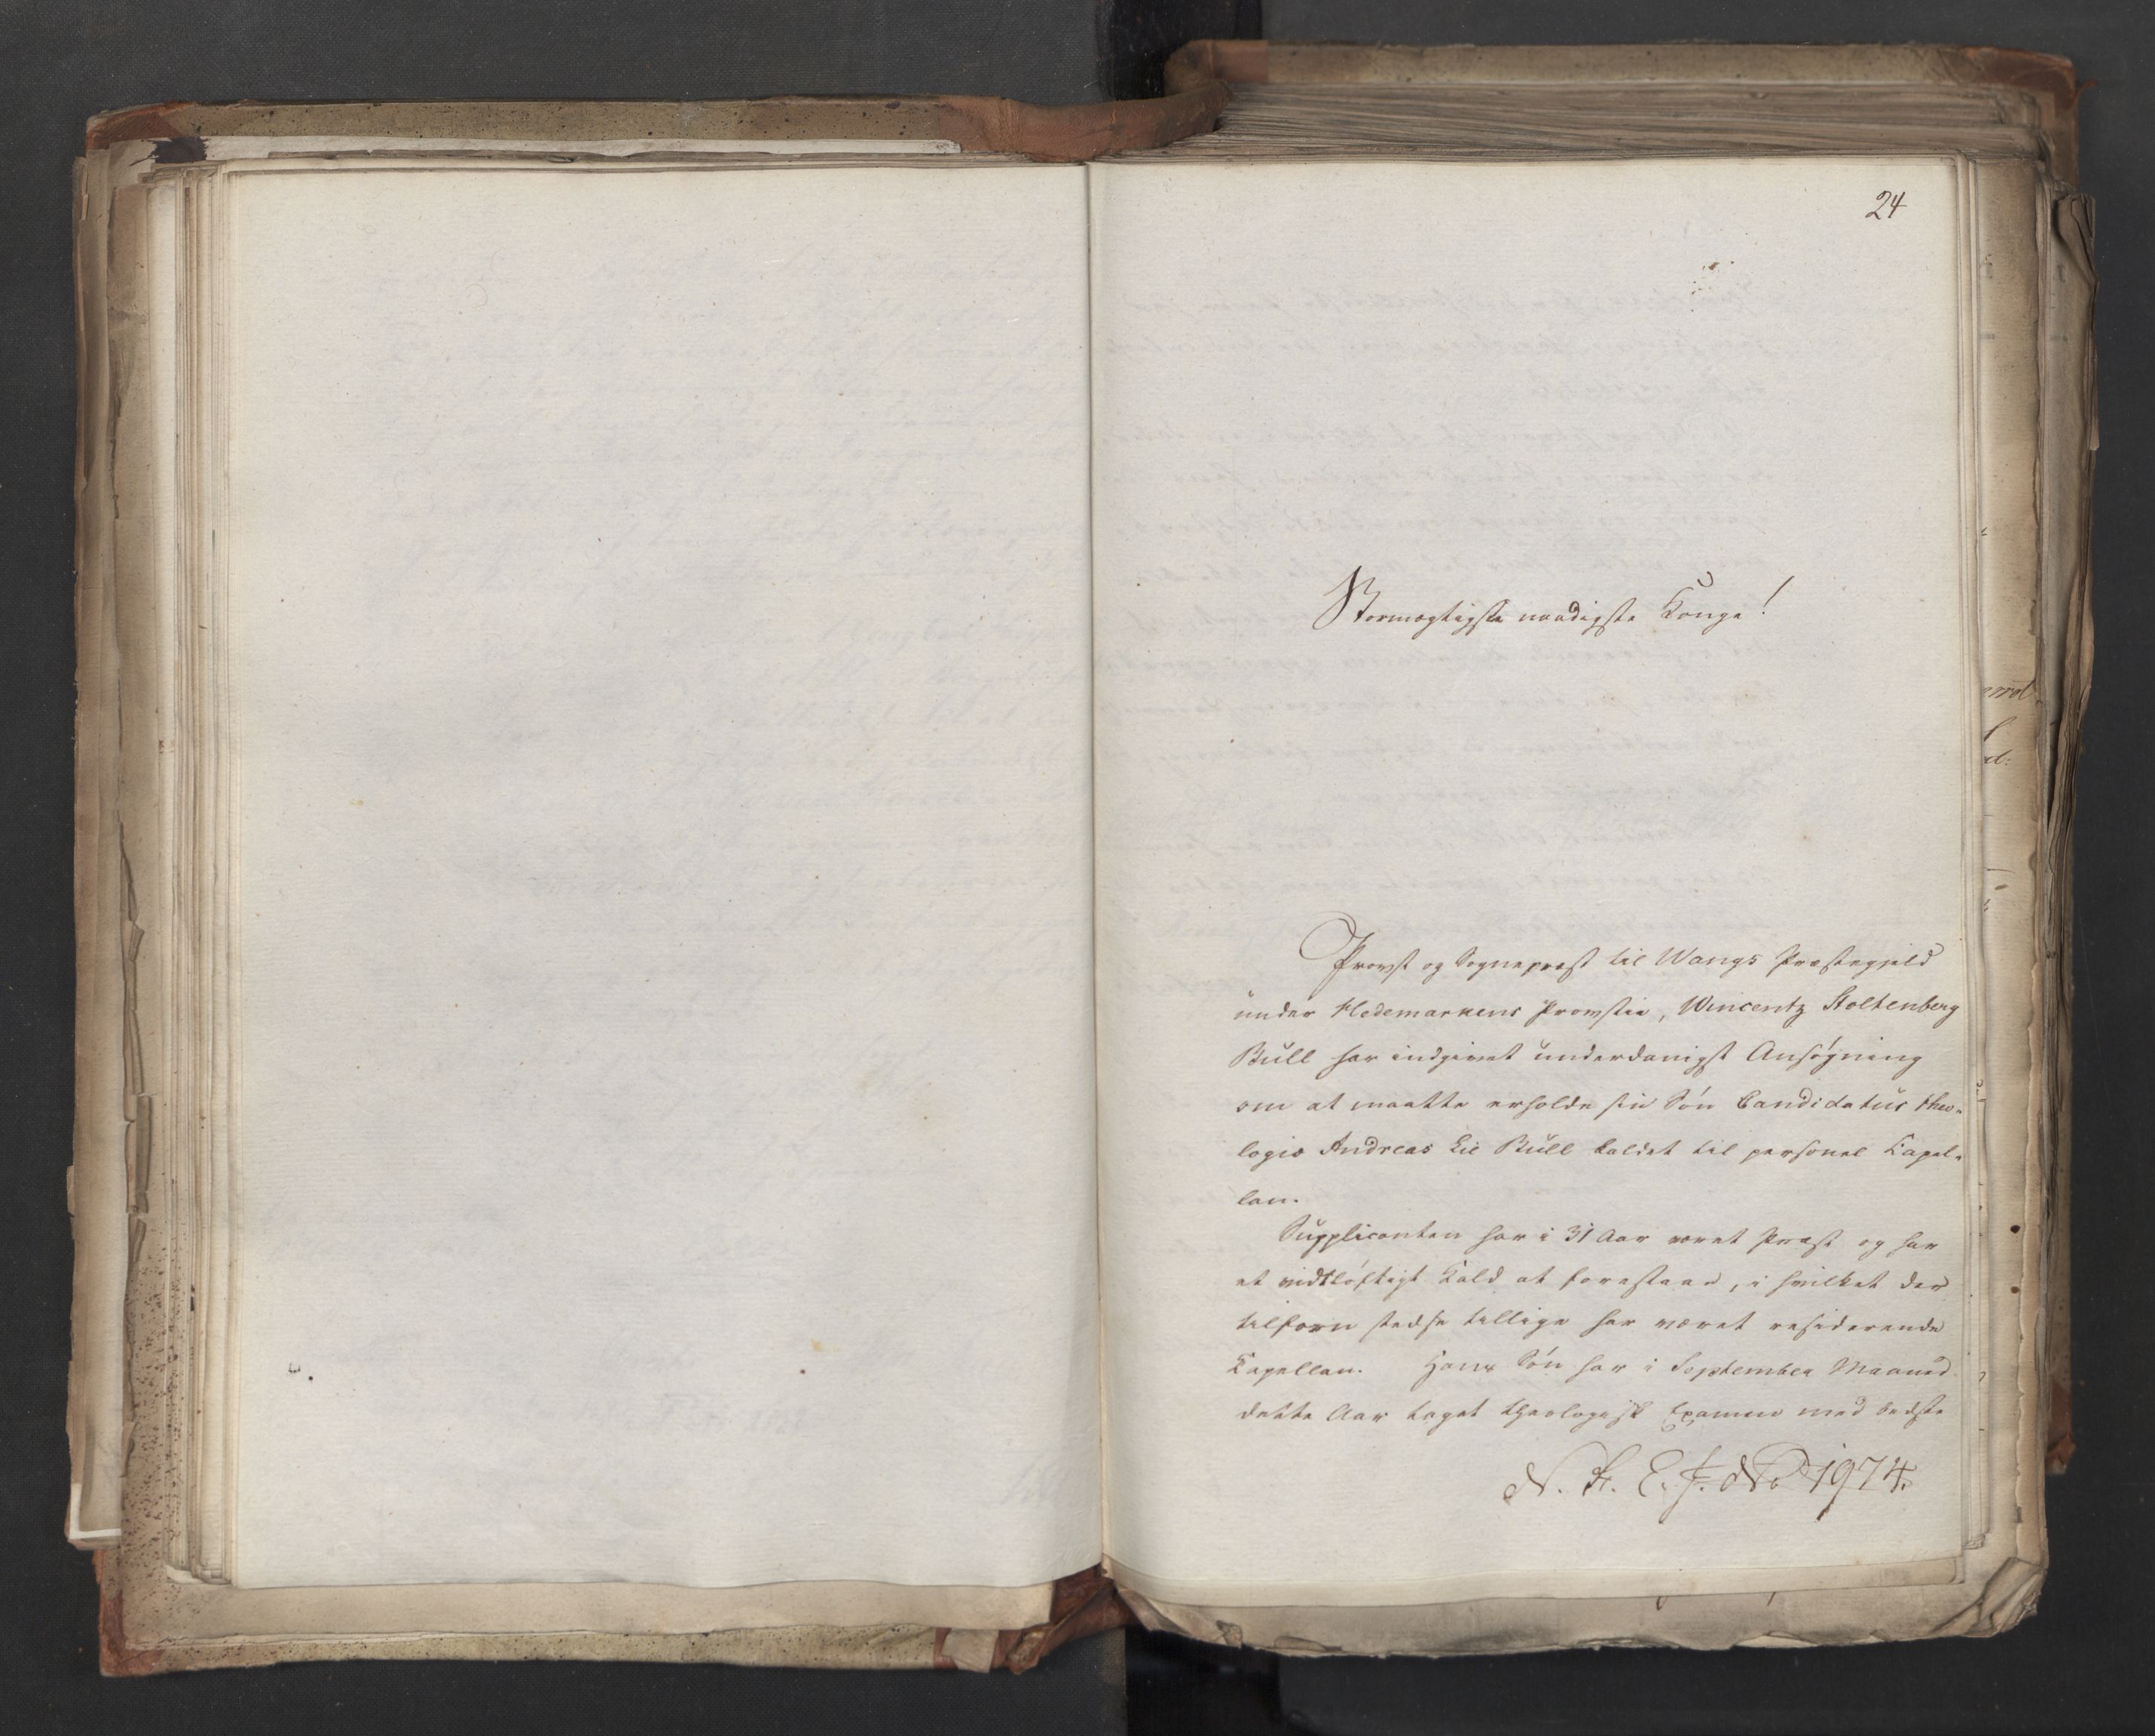 24
Stormægtigste naadigste Konge!
Provst og Sognepræst til Wangs Præstegjeld
under Hedemarkens Provstie, Wincentz Stoltenberg
Bull har indgivet underdanigst Ansøgning
om at maatte erholde sin Søn Candidatus theo-
logiæ Andreas Lie Bull kaldet til personel Kapel-
lan.
Supplicanten har i 31 Aar været Præst og har
et vidtløftigt Kald at forestaae, i hvilket der
tilforn stedse tillige har været residerende
Kapellan. Hans Søn har i September Maaned
dette Aar taget theologisk Examen med bedste
No 1974.